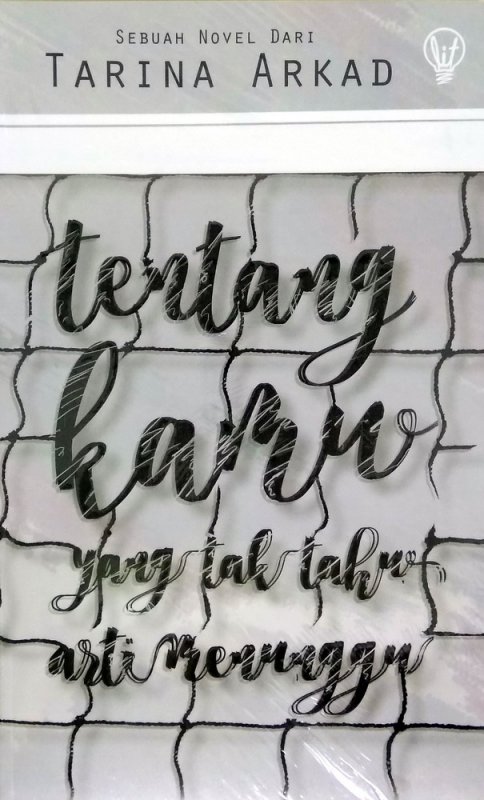 SEBUAH NOVEL DARI
TARINA ARKAD
lit
tentang
kamu
yang tak tahu
arti menunggu